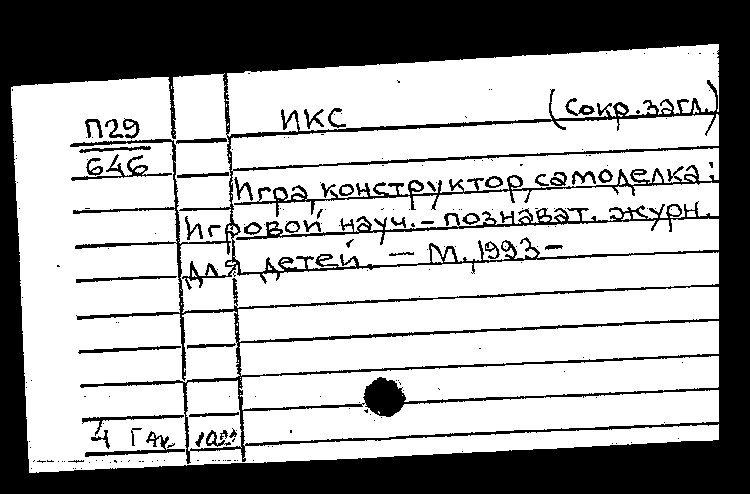 П29 ИКС (сокр. загл.)
646
Игра, конструктор, самоделка:
Игровой науч.-познават. журн.
для детей. — М., 1993 —
4